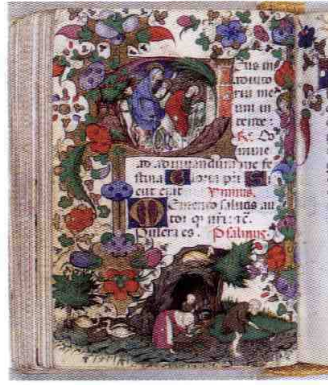 eus in
adiuto
riu me
um in
tende.
Do
mine
ad adiuvandum me fe
stina Gloria pri Si
cut erat ymnus.
Memento salutis au
tor q nri. tc.
Pulcra es. Psalmus.